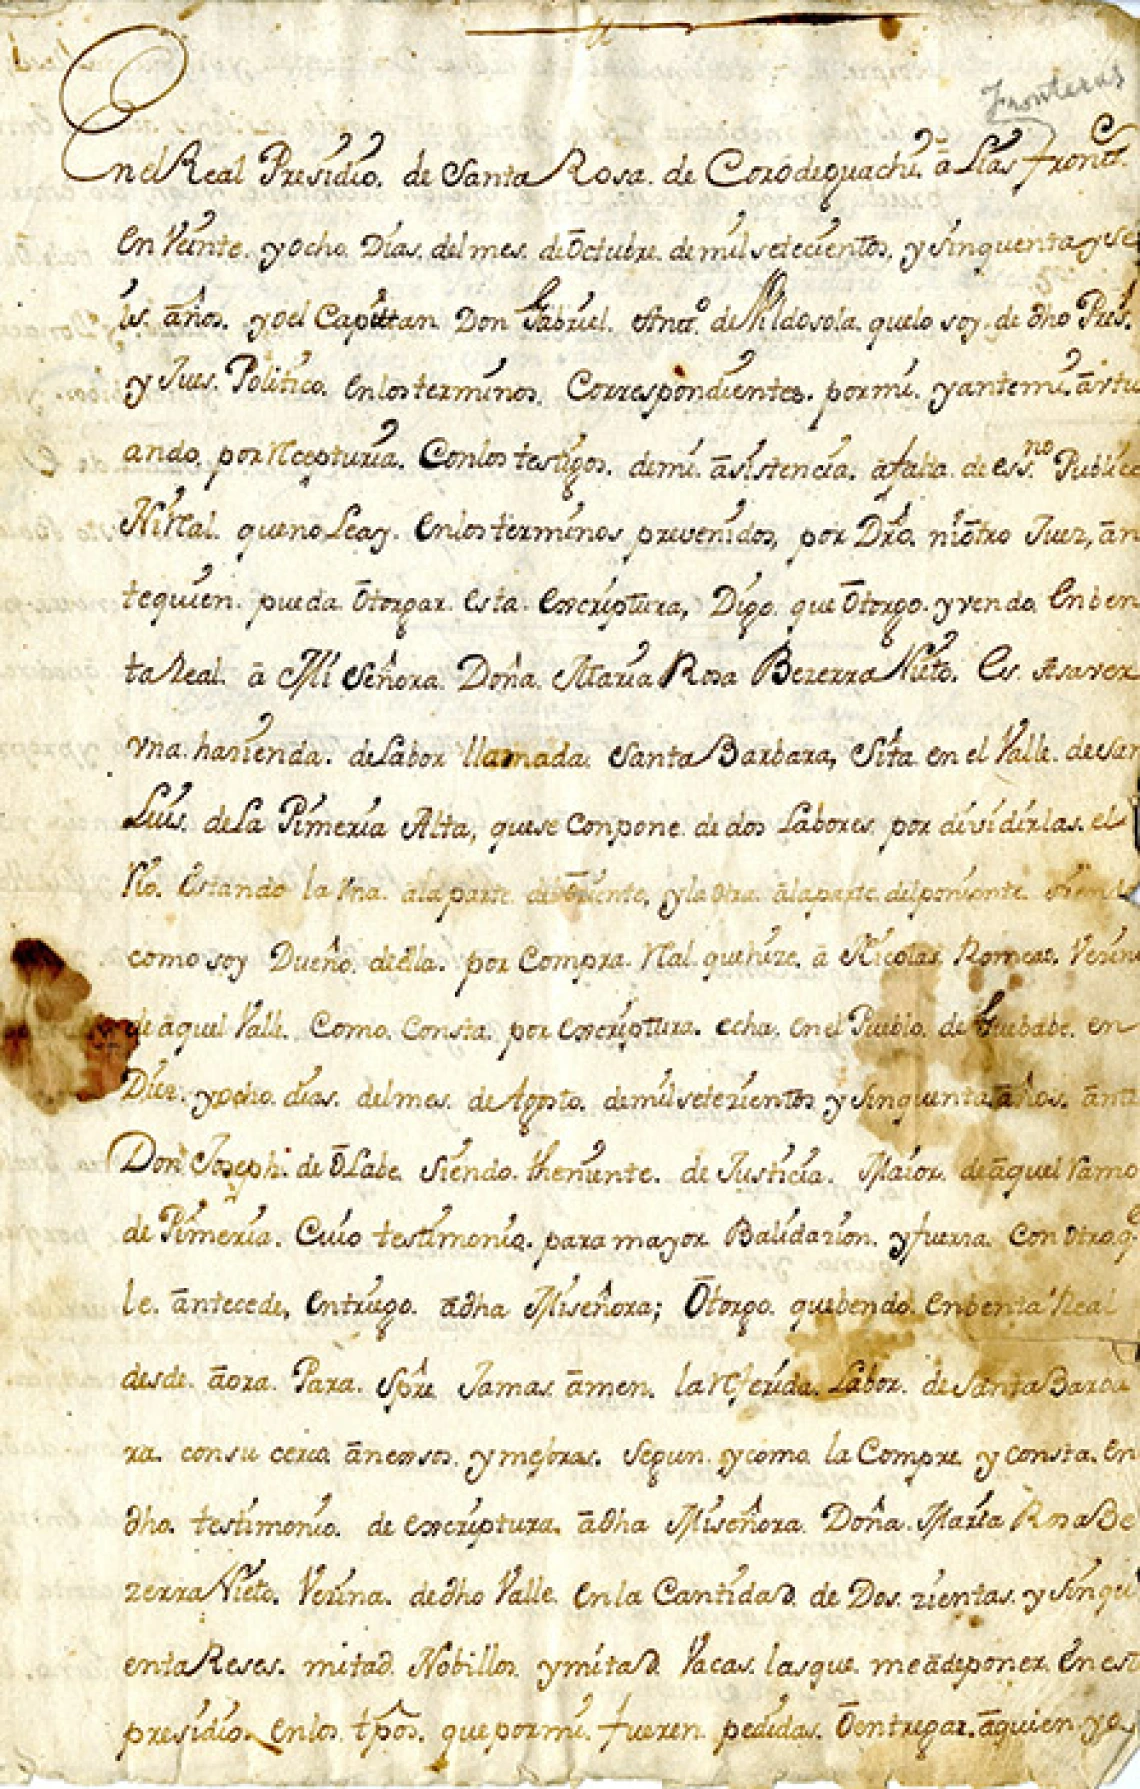 Fronteras
En el Real Presidio. de Santa Rosa. de Corodeguachi. ā Llas fronts.
En Veinte. y ocho. Dias. del mes. de Octubre. de mil setecientos. y sinquenta y se
is. años. yo el Capittan Don Gabriel. Anto. de Vildosola. que lo soy. de dho Pres.
y Jues. Politico. en los terminos. Correspondientes. por mi. y ante mi. actu
ando. por Rcepturia. Con los testigos. de mi. asistencia. a falta. de essno. Publico
Ni Rl. que no Leay. en los terminos prevenidos, por Dro. ni otro Juez, an
te quien. pueda otorgar. esta. escriptura, Digo. que Otorgo. y vendo. En ben
ta Real. a Mi Señora. Doña. Maria Rosa Bezerra Nieto. Es. Asaver
vna. hazienda. de Labor llamada. Santa Barbara, Sita en el Valle. de San
Luis. de La Pimeria Alta, que se Conpone. de dos Labores. por dividirlas. el
Rio. Estando la Vna. a la parte. del Oriente, y la otra. a la parte. del poniente.
como soy Dueño. de ella. por Compra. Rl. que hize. a Nicolas Romero. Vezino
de aquel Valle. Como. Consta. por escriptura. echa. en el Pueblo. de Guebabi. en
Diez. y ocho. dias. del mes. de Agosto. de mil setezientos y sinquenta años. ante
Don Joseph. de Olabe. siendo. theniente. de Justicia. Maior. de aquel ramo
de Pimeria. Cuio testimonio. para mayor Balidazion. y fuerza. con otro q.
le. antecede, entrego. a dha Mi señora; Otorgo. que bendo. en benta Real
desde. aora. Para. Spre Jamas. amen. la Rferida. Labor. de Santa Barba
ra. con su cerco. anecsos. y mejoras. segun. y como. la Compre y consta. en
dho. testimonio. de escriptura. a dha Mi señora. Doña. Maria Rosa Be
zerra Nieto. Vezina. de dho Valle. en la Cantidad. de Dos. zientas. y sinqu
enta Reses. mitad. Nobillos. y mitad. Vacas. las que. me a de poner. En este
presidio. en los. tpos. que por mi. fueren. pedidas. O entregar. a quien yo